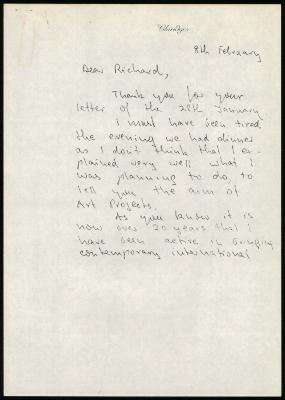 Claridge's
8th February
Dear Richard,
Thank you for your
letter of the 28th January
I must have been tired
the evening we had dinner
as I don't think that I ex-
plained very well what I
was planning to do, to
tell you the aim of
Art Projects.
As you know it is
now over 20 years that I
have been active in bringing
contemporary international